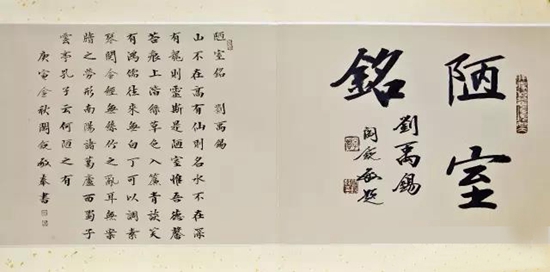 陋室
銘
劉禹錫
題
陋室銘 劉禹錫
山不在高有仙則名水不在深
有龍則靈斯是陋室惟吾德馨
苔痕上階綠草色入簾青談笑
有鴻儒往來無白丁可以調素
琴閱金經無絲竹之亂耳無案
牘之勞形南陽諸葛廬西蜀子
雲亭孔子云何陋之有
庚寅金秋 敬奉書